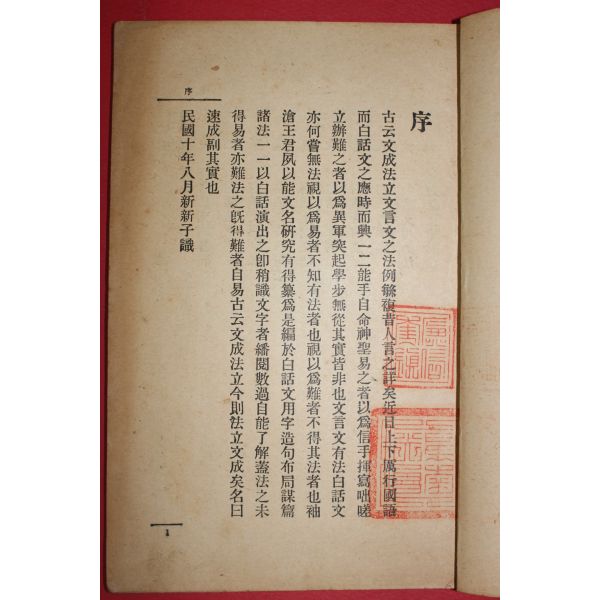 序
古云文成法立文言文之法例繁複昔人言之詳矣近日上下厲行國語
而白話文之應時而興一二能手自命神聖易之者以爲信手揮寫咄嗟
立辦難之者以爲異軍突起學步無從其實皆非也文言文有法白話文
亦何嘗無法視以爲易者不知有法者也視以爲難者不得其法者也袖
滄王君夙以能文名研究有得纂爲是編於白話文用字造句布局謀篇
諸法一一以白話演出之卽稍識文字者繙閱數過自能了解蓋法之未
得易者亦難法之旣得難者自易古云文成法立今則法立文成矣名曰
速成副其實也
民國十年八月新新子識
序
1